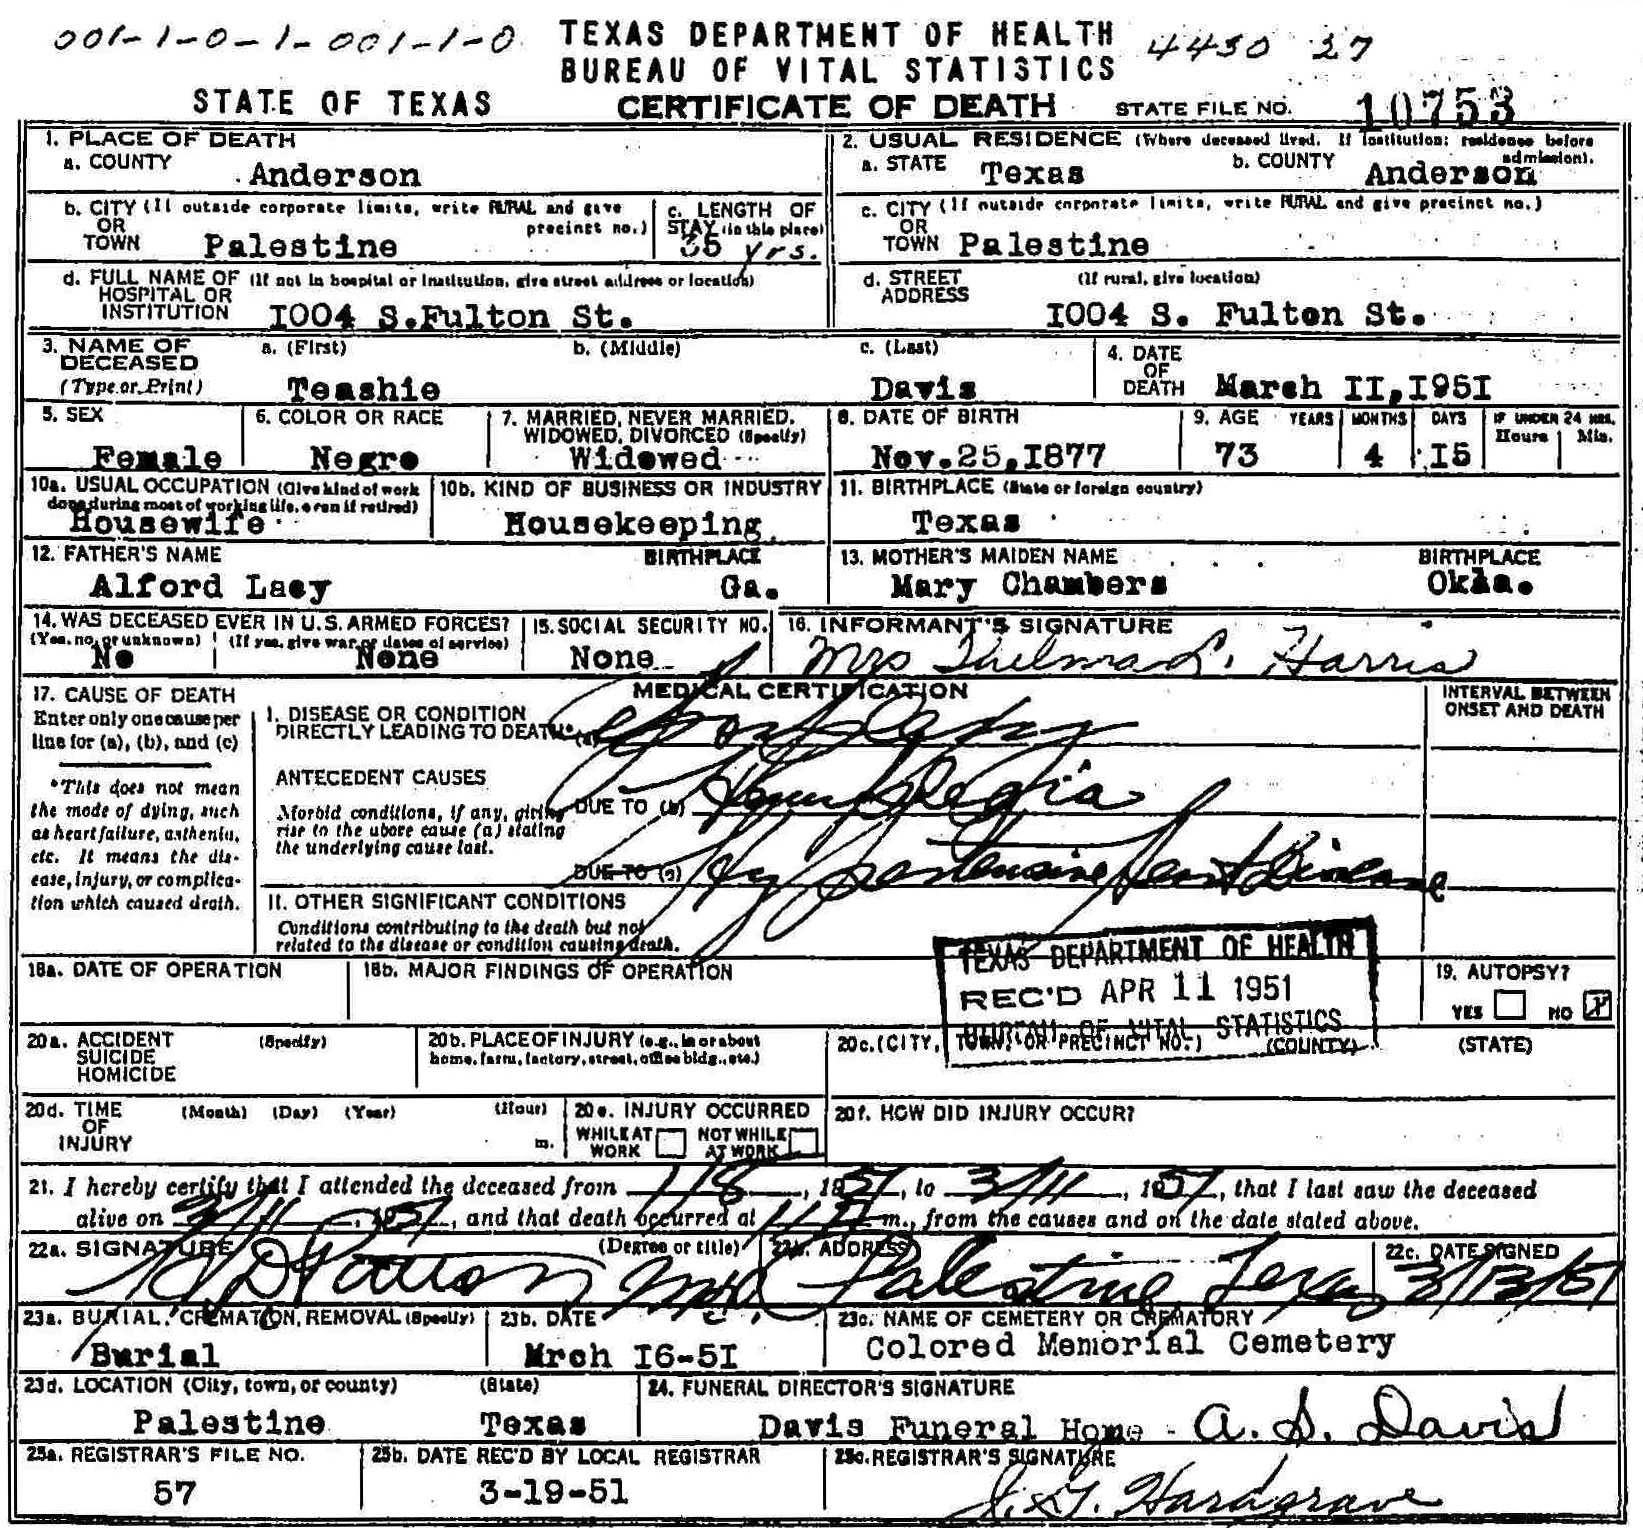 001-1-0-1-001-1-0 TEXAS DEPARTMENT OF HEALTH 4430 27
BUREAU OF VITAL STATISTICS
STATE OF TEXAS CERTIFICATE OF DEATH STATE FILE NO. 10753
1. PLACE OF DEATH
a. COUNTY Anderson
2. USUAL RESIDENCE (Where deceased lived. If institution: residence before admission).
a. STATE Texas b. COUNTY Anderson
b. CITY (If outside corporate limits, write RURAL and give precinct no.)
OR
TOWN Palestine
c. LENGTH OF
STAY (in this place)
35 yrs.
c. CITY (If outside corporate limits, write RURAL and give precinct no.)
OR
TOWN Palestine
d. FULL NAME OF (If not in hospital or institution, give street address or location)
HOSPITAL OR
INSTITUTION I004 S.Fulton St.
d. STREET (If rural, give location)
ADDRESS
I004 S. Fulton St.
3. NAME OF
DECEASED
(Type or Print)
a. (First) b. (Middle) c. (Last)
Teashie Davis
4. DATE
OF
DEATH March II,I95I
5. SEX
Female
6. COLOR OR RACE
Negro
7. MARRIED, NEVER MARRIED,
WIDOWED, DIVORCED (Specify)
Widowed
8. DATE OF BIRTH
Nov.25,I877
9. AGE YEARS MONTHS DAYS IF UNDER 24 HRS.
Hours Min.
73 4 I5
10a. USUAL OCCUPATION (Give kind of work
done during most of working life, even if retired)
Housewife
10b. KIND OF BUSINESS OR INDUSTRY
Housekeeping
11. BIRTHPLACE (State or foreign country)
Texas
12. FATHER'S NAME BIRTHPLACE
Alford Lacy Ga.
13. MOTHER'S MAIDEN NAME BIRTHPLACE
Mary Chambers Okla.
14. WAS DECEASED EVER IN U.S. ARMED FORCES?
(Yes, no, or unknown) (If yes, give war or dates of service)
No None
15. SOCIAL SECURITY NO.
None
16. INFORMANT'S SIGNATURE
Mrs Thelma L. Harris
17. CAUSE OF DEATH
Enter only one cause per
line for (a), (b), and (c)
*This does not mean
the mode of dying, such
as heart failure, asthenia,
etc. It means the dis-
ease, injury, or complica-
tion which caused death.
MEDICAL CERTIFICATION
INTERVAL BETWEEN
ONSET AND DEATH
I. DISEASE OR CONDITION
DIRECTLY LEADING TO DEATH* (a)
ANTECEDENT CAUSES
Morbid conditions, if any, giving
rise to the above cause (a) stating
the underlying cause last.
DUE TO (b) Hemiplegia
DUE TO (c) Hypertensive Heart Disease
II. OTHER SIGNIFICANT CONDITIONS
Conditions contributing to the death but not
related to the disease or condition causing death.
TEXAS DEPARTMENT OF HEALTH
REC'D APR 11 1951
BUREAU OF VITAL STATISTICS
18a. DATE OF OPERATION
18b. MAJOR FINDINGS OF OPERATION
19. AUTOPSY?
YES NO X
20a. ACCIDENT (Specify)
SUICIDE
HOMICIDE
20b. PLACE OF INJURY (e.g., in or about
home, farm, factory, street, office bldg., etc.)
20c. (CITY, TOWN, OR PRECINCT NO.) (COUNTY) (STATE)
20d. TIME (Month) (Day) (Year) (Hour)
OF
INJURY m.
20e. INJURY OCCURRED
WHILE AT WORK NOT WHILE AT WORK
20f. HOW DID INJURY OCCUR?
21. I hereby certify that I attended the deceased from 1/8, 1951, to 3/11, 1951, that I last saw the deceased
alive on 3/11, 1951, and that death occurred at m., from the causes and on the date stated above.
22a. SIGNATURE (Degree or title)
Patton MD
22b. ADDRESS
Palestine, Texas
22c. DATE SIGNED
3/13/51
23a. BURIAL, CREMATION, REMOVAL (Specify)
Burial
23b. DATE
Mrch I6-5I
23c. NAME OF CEMETERY OR CREMATORY
Colored Memorial Cemetery
23d. LOCATION (City, town, or county) (State)
Palestine Texas
24. FUNERAL DIRECTOR'S SIGNATURE
Davis Funeral Home - A. S. Davis
25a. REGISTRAR'S FILE NO.
57
25b. DATE REC'D BY LOCAL REGISTRAR
3-19-51
25c. REGISTRAR'S SIGNATURE
Hardgrave